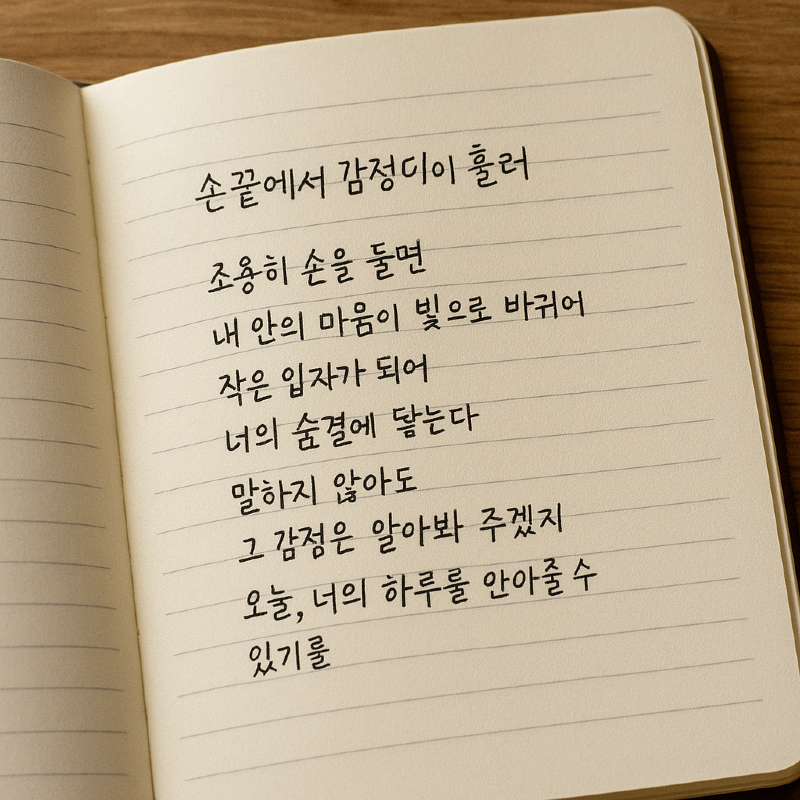 손끝에서 감정디이 훌러
조용히 손을 둘면
내 안의 마움이 빛으로 바귀어
작은 입자가 되어
너의 숨결에 닿는다
말하지 않아도
그 감정은 알아봐 주겠지
오눌, 너의 하루룰 안아줄 수
있기룰